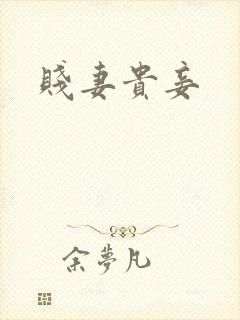 賤妻貴妾
余夢凡